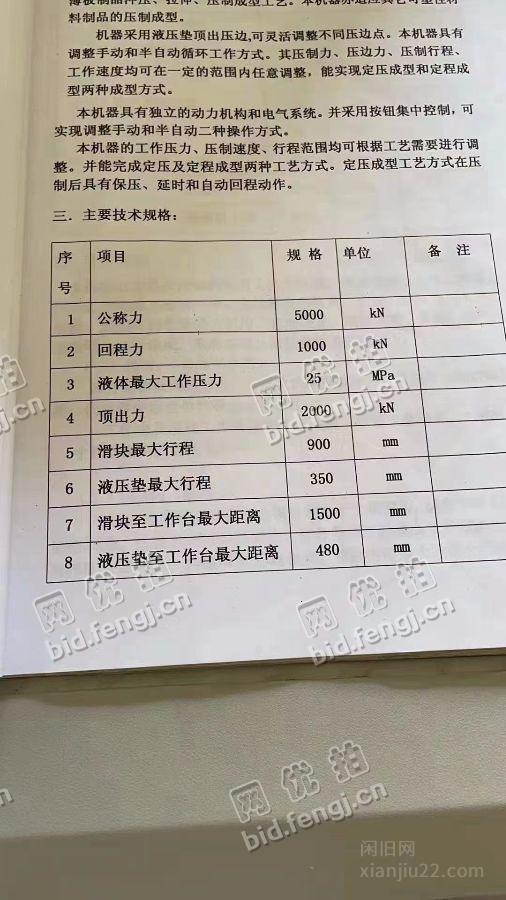 薄板制品冲压、拉伸、压制成型工艺。本机器亦适应其它可塑性材
料制品的压制成型。
机器采用液压垫顶出压边,可灵活调整不同压边点。本机器具有
调整手动和半自动循环工作方式。其压制力、压边力、压制行程、
工作速度均可在一定的范围内任意调整，能实现定压成型和定程成
型两种成型方式。
本机器具有独立的动力机构和电气系统。并采用按钮集中控制，可
实现调整手动和半自动二种操作方式。
本机器的工作压力、压制速度、行程范围均可根据工艺需要进行调
整。并能完成定压及定程成型两种工艺方式。定压成型工艺方式在压
制后具有保压、延时和自动回程动作。
三．主要技术规格：
序号 项目 规格 单位 备注
1 公称力 5000 kN
2 回程力 1000 kN
3 液体最大工作压力 25 MPa
4 顶出力 2000 kN
5 滑块最大行程 900 mm
6 液压垫最大行程 350 mm
7 滑块至工作台最大距离 1500 mm
8 液压垫至工作台最大距离 480 mm
网优拍
bid.fengj.cn
网优拍
bid.fengj.cn
网优拍
bid.fengj.cn
网优拍
bid.fengj.cn
网优拍
bid.fengj.cn
闲旧网
xianjiu22.com